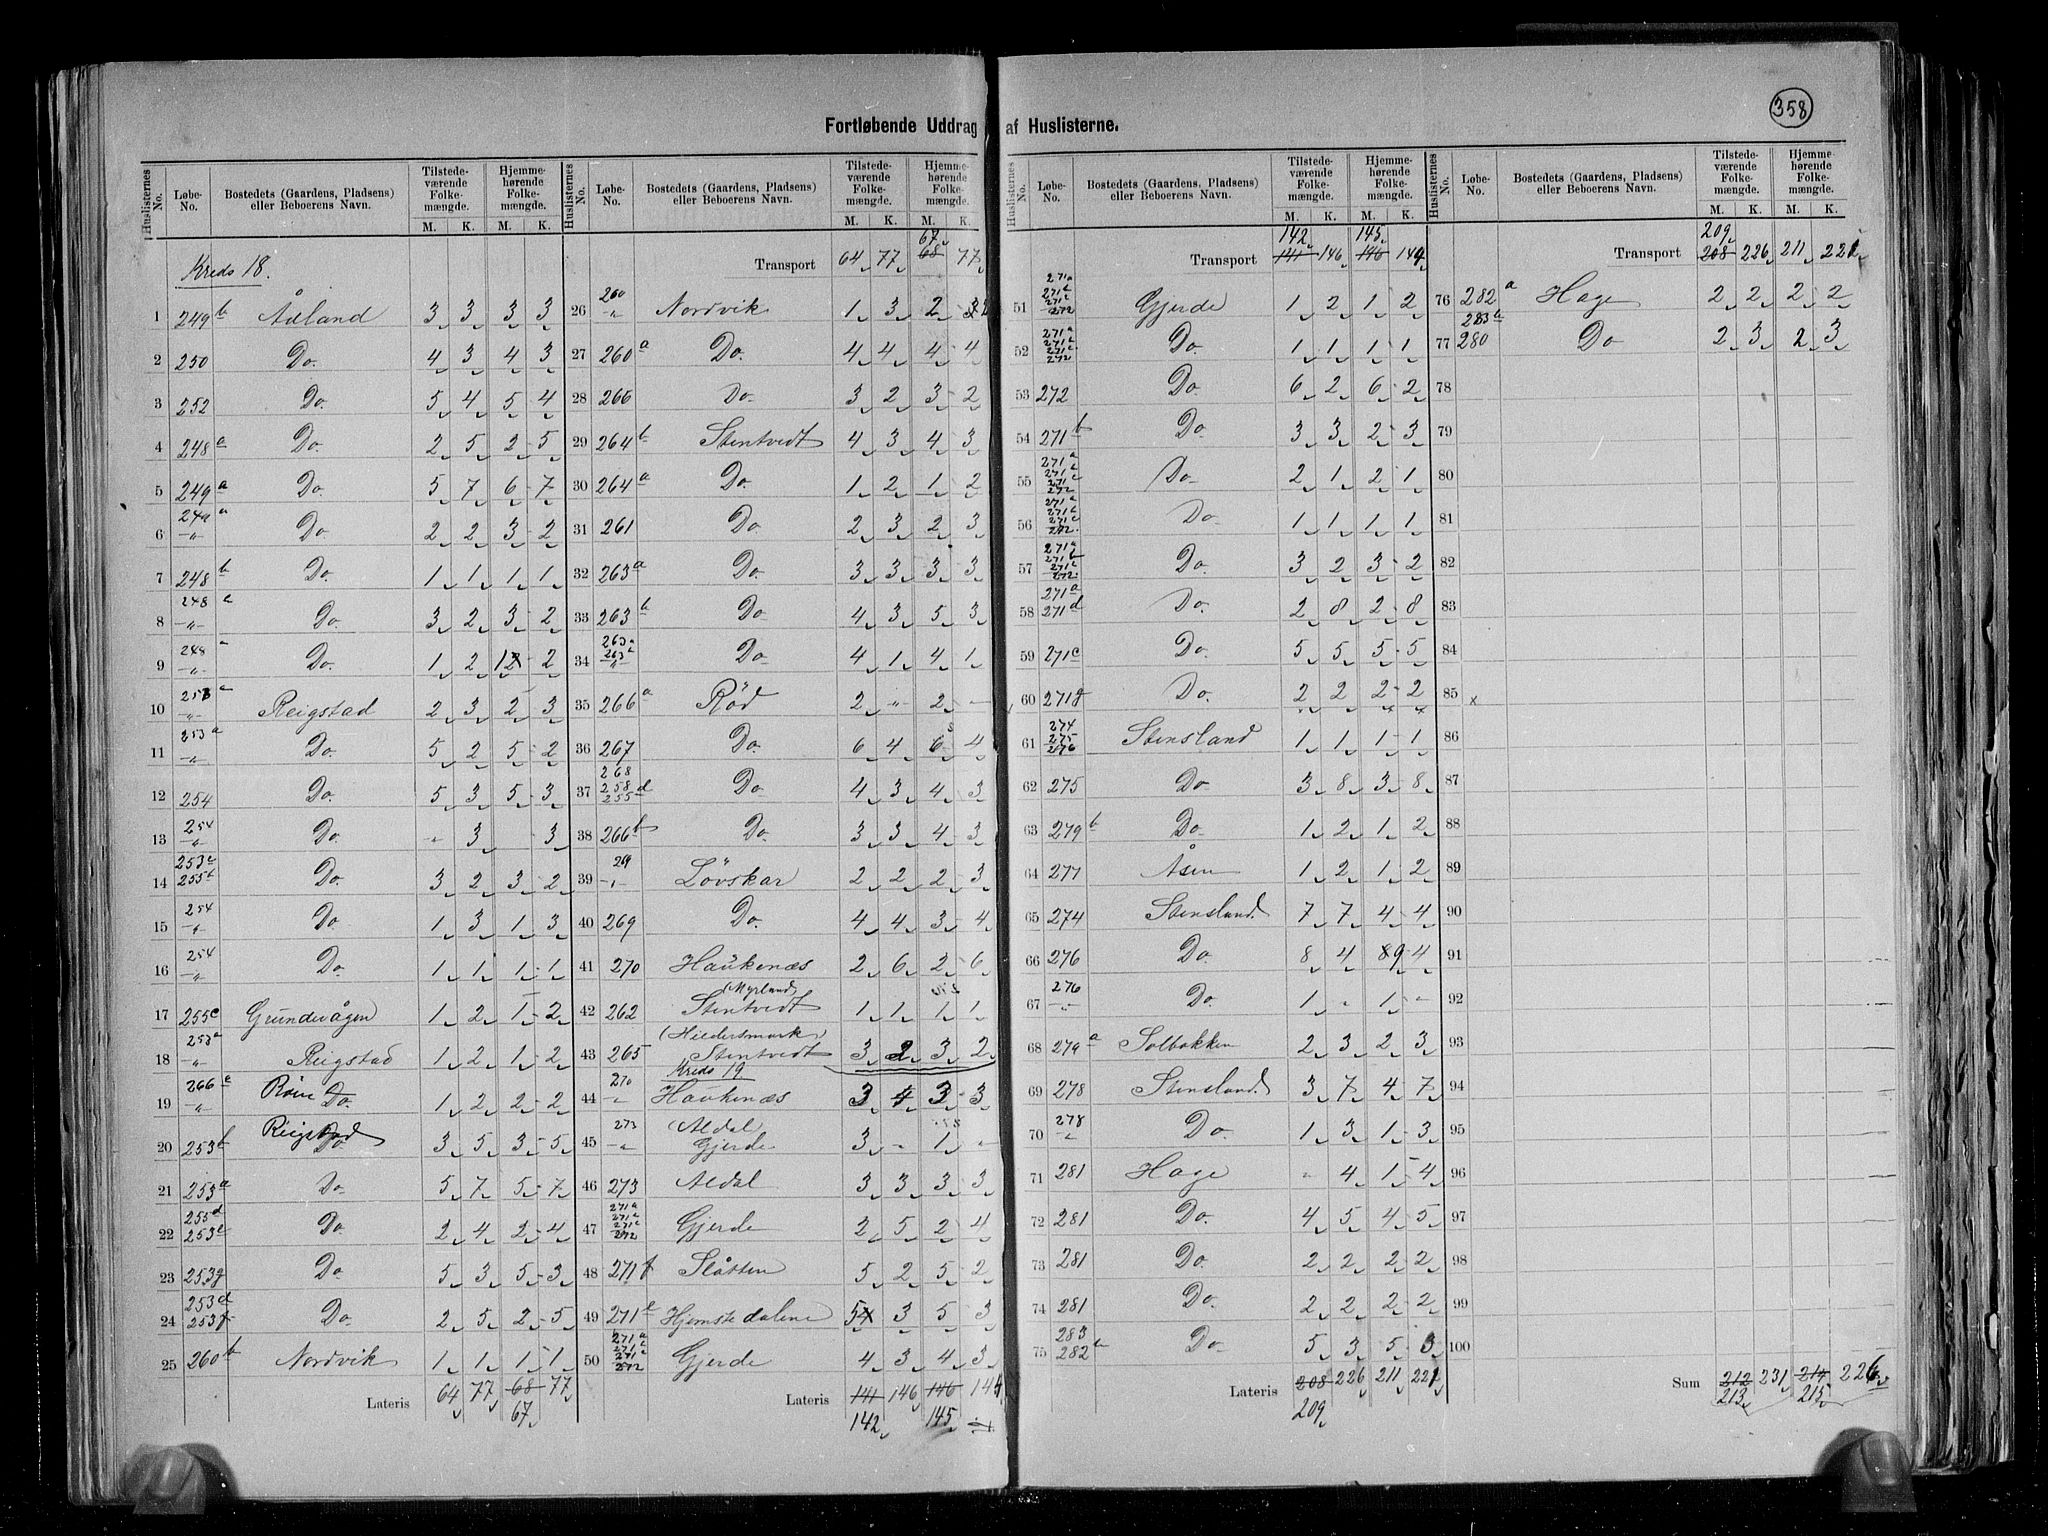 358
Fortløbende Uddrag af Huslisterne.
Huslisternes No. Løbe-No. Bostedets (Gaardens, Pladsens) eller Beboerens Navn. Tilstedeværende Folkemængde. M. K. Hjemmehørende Folkemængde. M. K.
Kreds 18.
1 249 b Åeland 3 3 3 3
2 250 Do. 4 3 4 3
3 252 Do. 5 4 5 4
4 248 a Do. 2 5 2 5
5 249 a Do 5 7 6 7
6 249 a Do 2 2 3 2
7 248 b Do. 1 1 1 1
8 248 a Do. 3 2 3 2
9 248 a Do. 1 2 1 2
10 253 a Reigstad 2 3 2 3
11 253 a Do. 5 2 5 2
12 254 Do. 5 3 5 3
13 254 Do. - 3 3
14 253 255 Do. 3 2 3 2
15 254 Do 1 3 1 3
16 254 Do. 1 1 1 1
17 255 c Grundevågen 1 2 1 2
18 253 a Reigstad 1 2 1 2
19 266 Do. 1 2 2 2
20 253 b Reigstad Do. 3 5 3 5
21 253 a Do 5 7 5 7
22 255 d 253 e Do. 2 4 2 4
23 253 g Do. 5 3 5 3
24 253 d 253 f Do. 2 5 2 5
25 260 b Nordvik 1 1 1 1
Lateris 64 77 68 77
67
67
Transport 64 77 68 77
26 260 Nordvik 1 3 2 2
27 260 a Do. 4 4 4 4
28 266 Do. 3 2 3 2
29 264 b Stentvedt 4 3 4 3
30 264 a Do. 1 2 1 2
31 261 Do. 2 3 2 3
32 263 a Do. 3 3 3 3
33 263 b Do 4 3 5 3
34 263 a 263 Do 4 1 4 1
35 266 a Röd 2 - 2 -
36 267 Do. 6 4 6 4
37 268 258 255 d Do. 4 3 4 3
38 266 b Do. 3 3 4 3
39 269 Lövskar 2 2 2 3
40 269 Do. 4 4 3 4
41 270 Haukenæs 2 6 2 6
42 262 (Myrland) Stentvedt 1 1 1 1
43 265 Stentvedt 3 2 3 2
Kreds 19
44 270 Haukenæs 3 4 3 3
45 273 (Aldal) Gjerde 3 - 1 -
46 273 Aldal 3 3 3 3
47 271 a 271 271 272 Gjerde 2 5 2 4
48 271 f Slåtten 5 2 5 2
49 271 e Hjemstedalene 5 3 5 3
50 271 a 271 271 272 Gjerde 4 3 4 3
Lateris 141 146 146 144
142 145
142 145
Transport 141 146 146 144
51 271 a 271 271 272 Gjerde 1 2 1 2
52 271 a 271 271 272 Do. 1 1 1 1
53 272 Do 6 2 6 2
54 271 b Do 3 3 2 3
55 271 a 271 271 272 Do 2 1 2 1
56 271 a 271 271 c 272 Do. 1 1 1 1
57 271 a 271 b 271 272 Do. 3 2 3 2
58 271 a 271 d Do. 2 8 2 8
59 271 c Do. 5 5 5 5
60 271 g Do. 2 2 2 2
61 274 275 276 Stensland 1 1 1 1
62 275 Do 3 8 3 8
63 279 b Do. 1 2 1 2
64 277 Åsen 1 2 1 2
65 274 Stensland 7 7 4 4
66 276 Do. 8 4 8 9 4
67 276 Do 1 - 1 -
68 279 a Solbakken 2 3 2 3
69 278 Stensland 3 7 4 7
70 278 Do. 1 3 1 3
71 281 Hage - 4 1 4
72 281 Do. 4 5 4 5
73 281 Do 2 2 2 2
74 281 Do. 2 2 2 2
75 283 282 b Do. 5 3 5 3
Lateris 208 226 211 221
209
209
Transport 208 226 211 221
76 282 a Hage 2 2 2 2
77 283 280 Do 2 3 2 3
78
79
80
81
82
83
84
85 x
86
87
88
89
90
91
92
93
94
95
96
97
98
99
100
Sum 212 231 214 226
213 215